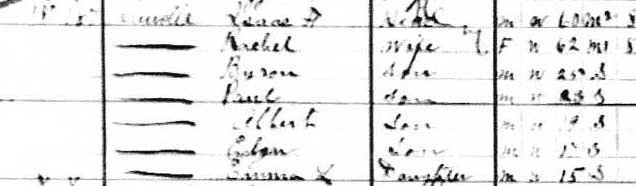 Isaac A Head m w 60 m² S
Rachel Wife F w 62 m1 S
Byron Son m w 25 S
Paul Son m w 23 S
Albert Son m w 19 S
Son m w 17 S
Emma X Daughter m w 15 S